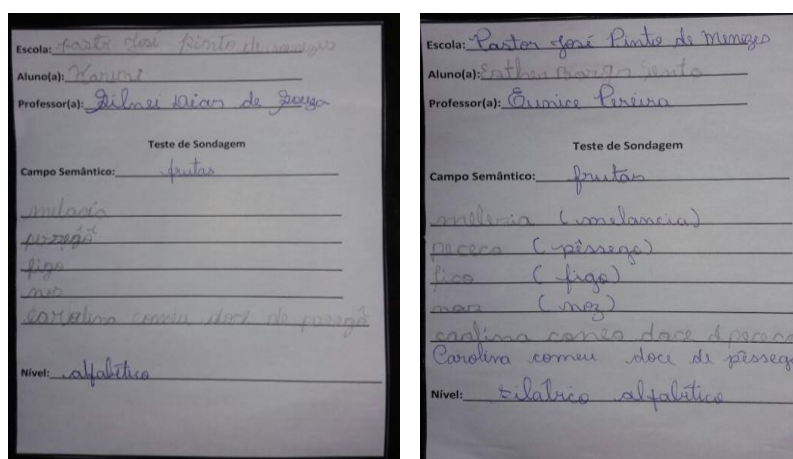 Escola: pastor José pinto de menezes
Aluno(a): Karine
Professor(a): Gilnei Dias de Souza
Teste de Sondagem
Campo Semântico: frutas
melacia
figo
nos
carolina comeu doce de
Nível: alfabético
Escola: Pastor José Pinto de Menezes
Aluno(a): Esther Borges
Professor(a): Eunice Pereira
Teste de Sondagem
Campo Semântico: frutas
melenia (melancia)
pececo (pêssego)
fico (figo)
noz (noz)
carolina coneo doce d pececo
Carolina comeu doce de pêssego
Nível: silábico alfabético